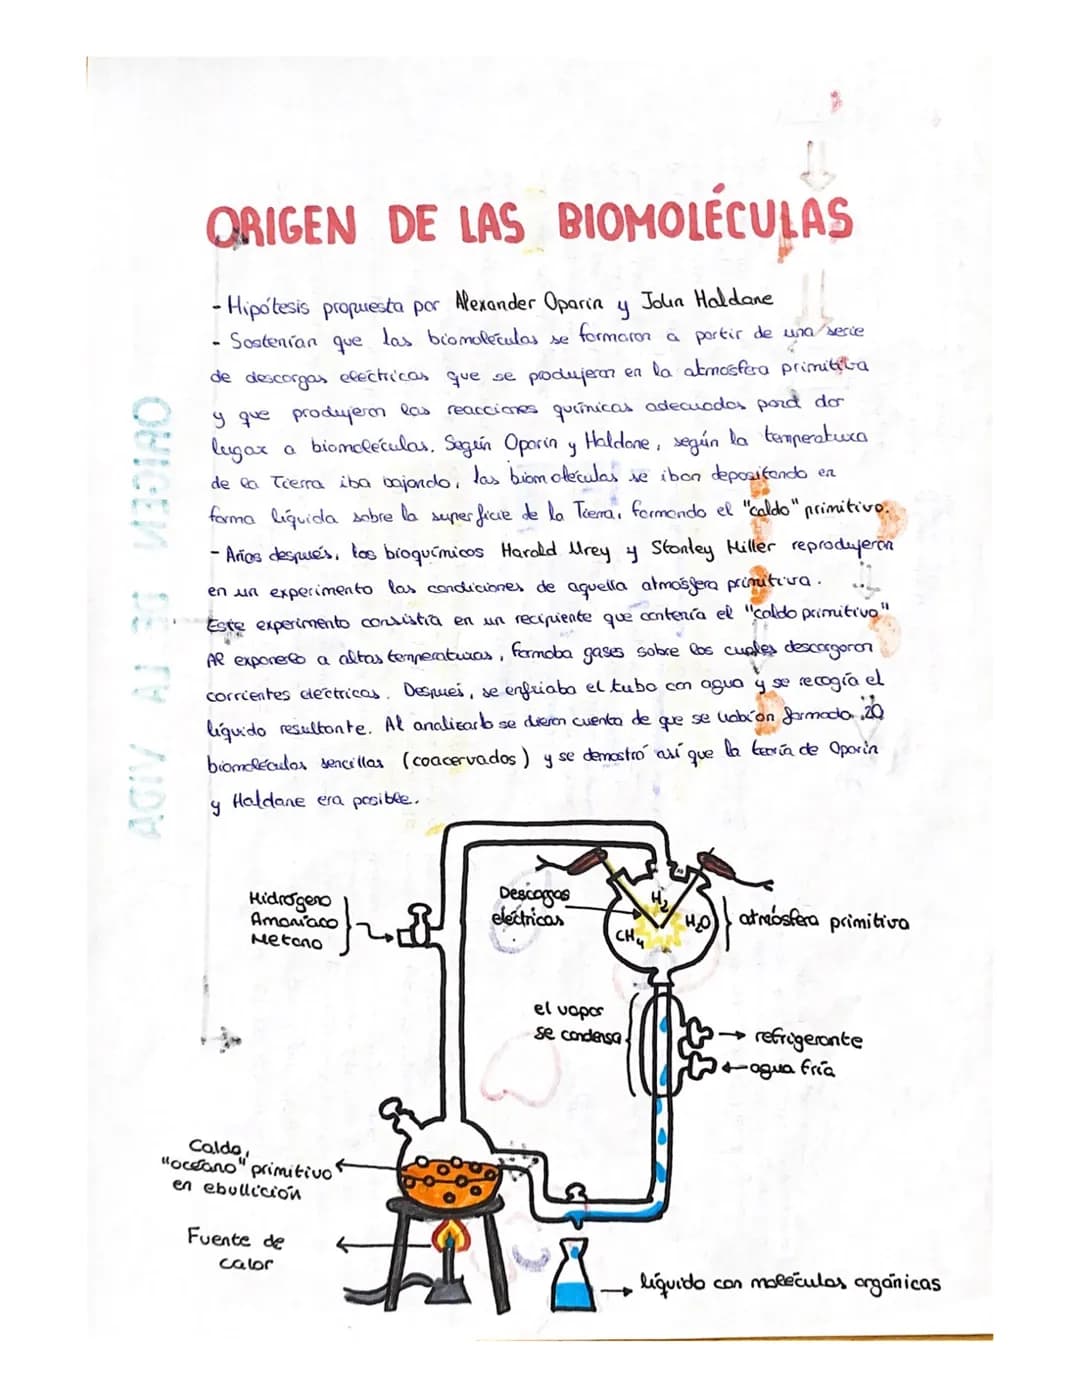 ORIGEN DE LAS BIOMOLÉCULAS
- Hipótesis propuesta por Alexander Oparin y John Haldane
- Sostenían que las biomoléculas se formaron a partir de una serie
de descargas eléctricas que se produjeron en la atmósfera primitiva
y que produjeron las reacciones químicas adecuadas para dar
lugar a biomoléculas. Según Oparin y Haldane, según la temperatura
de la Tierra iba bajando, las biomoléculas se iban depositando en
forma líquida sobre la superficie de la Tierra, formando el "caldo" primitivo.
- Años después, los bioquímicos Harold Urey y Stanley Miller reprodujeron
en un experimento las condiciones de aquella atmósfera primitiva.
Este experimento consistía en un recipiente que contenía el "caldo primitivo"
Al exponerlo a altas temperaturas, formaba gases sobre los cuales descargaron
corrientes eléctricas. Después, se enfriaba el tubo con agua y se recogía el
líquido resultante. Al analizarlo se dieron cuenta de que se habían formado 20
biomoléculas sencillas (coacervados) y se demostró así que la teoría de Oparin
y Haldane era posible.
Hidrógeno
Amoníaco
Metano
Descargas
eléctricas
H₂
H₂O
CH₄
atmósfera primitiva
el vapor
se condensa
refrigerante
agua fría
Caldo,
"océano" primitivo
en ebullición
Fuente de
calor
líquido con moléculas orgánicas
ORIGEN DE LA VIDA